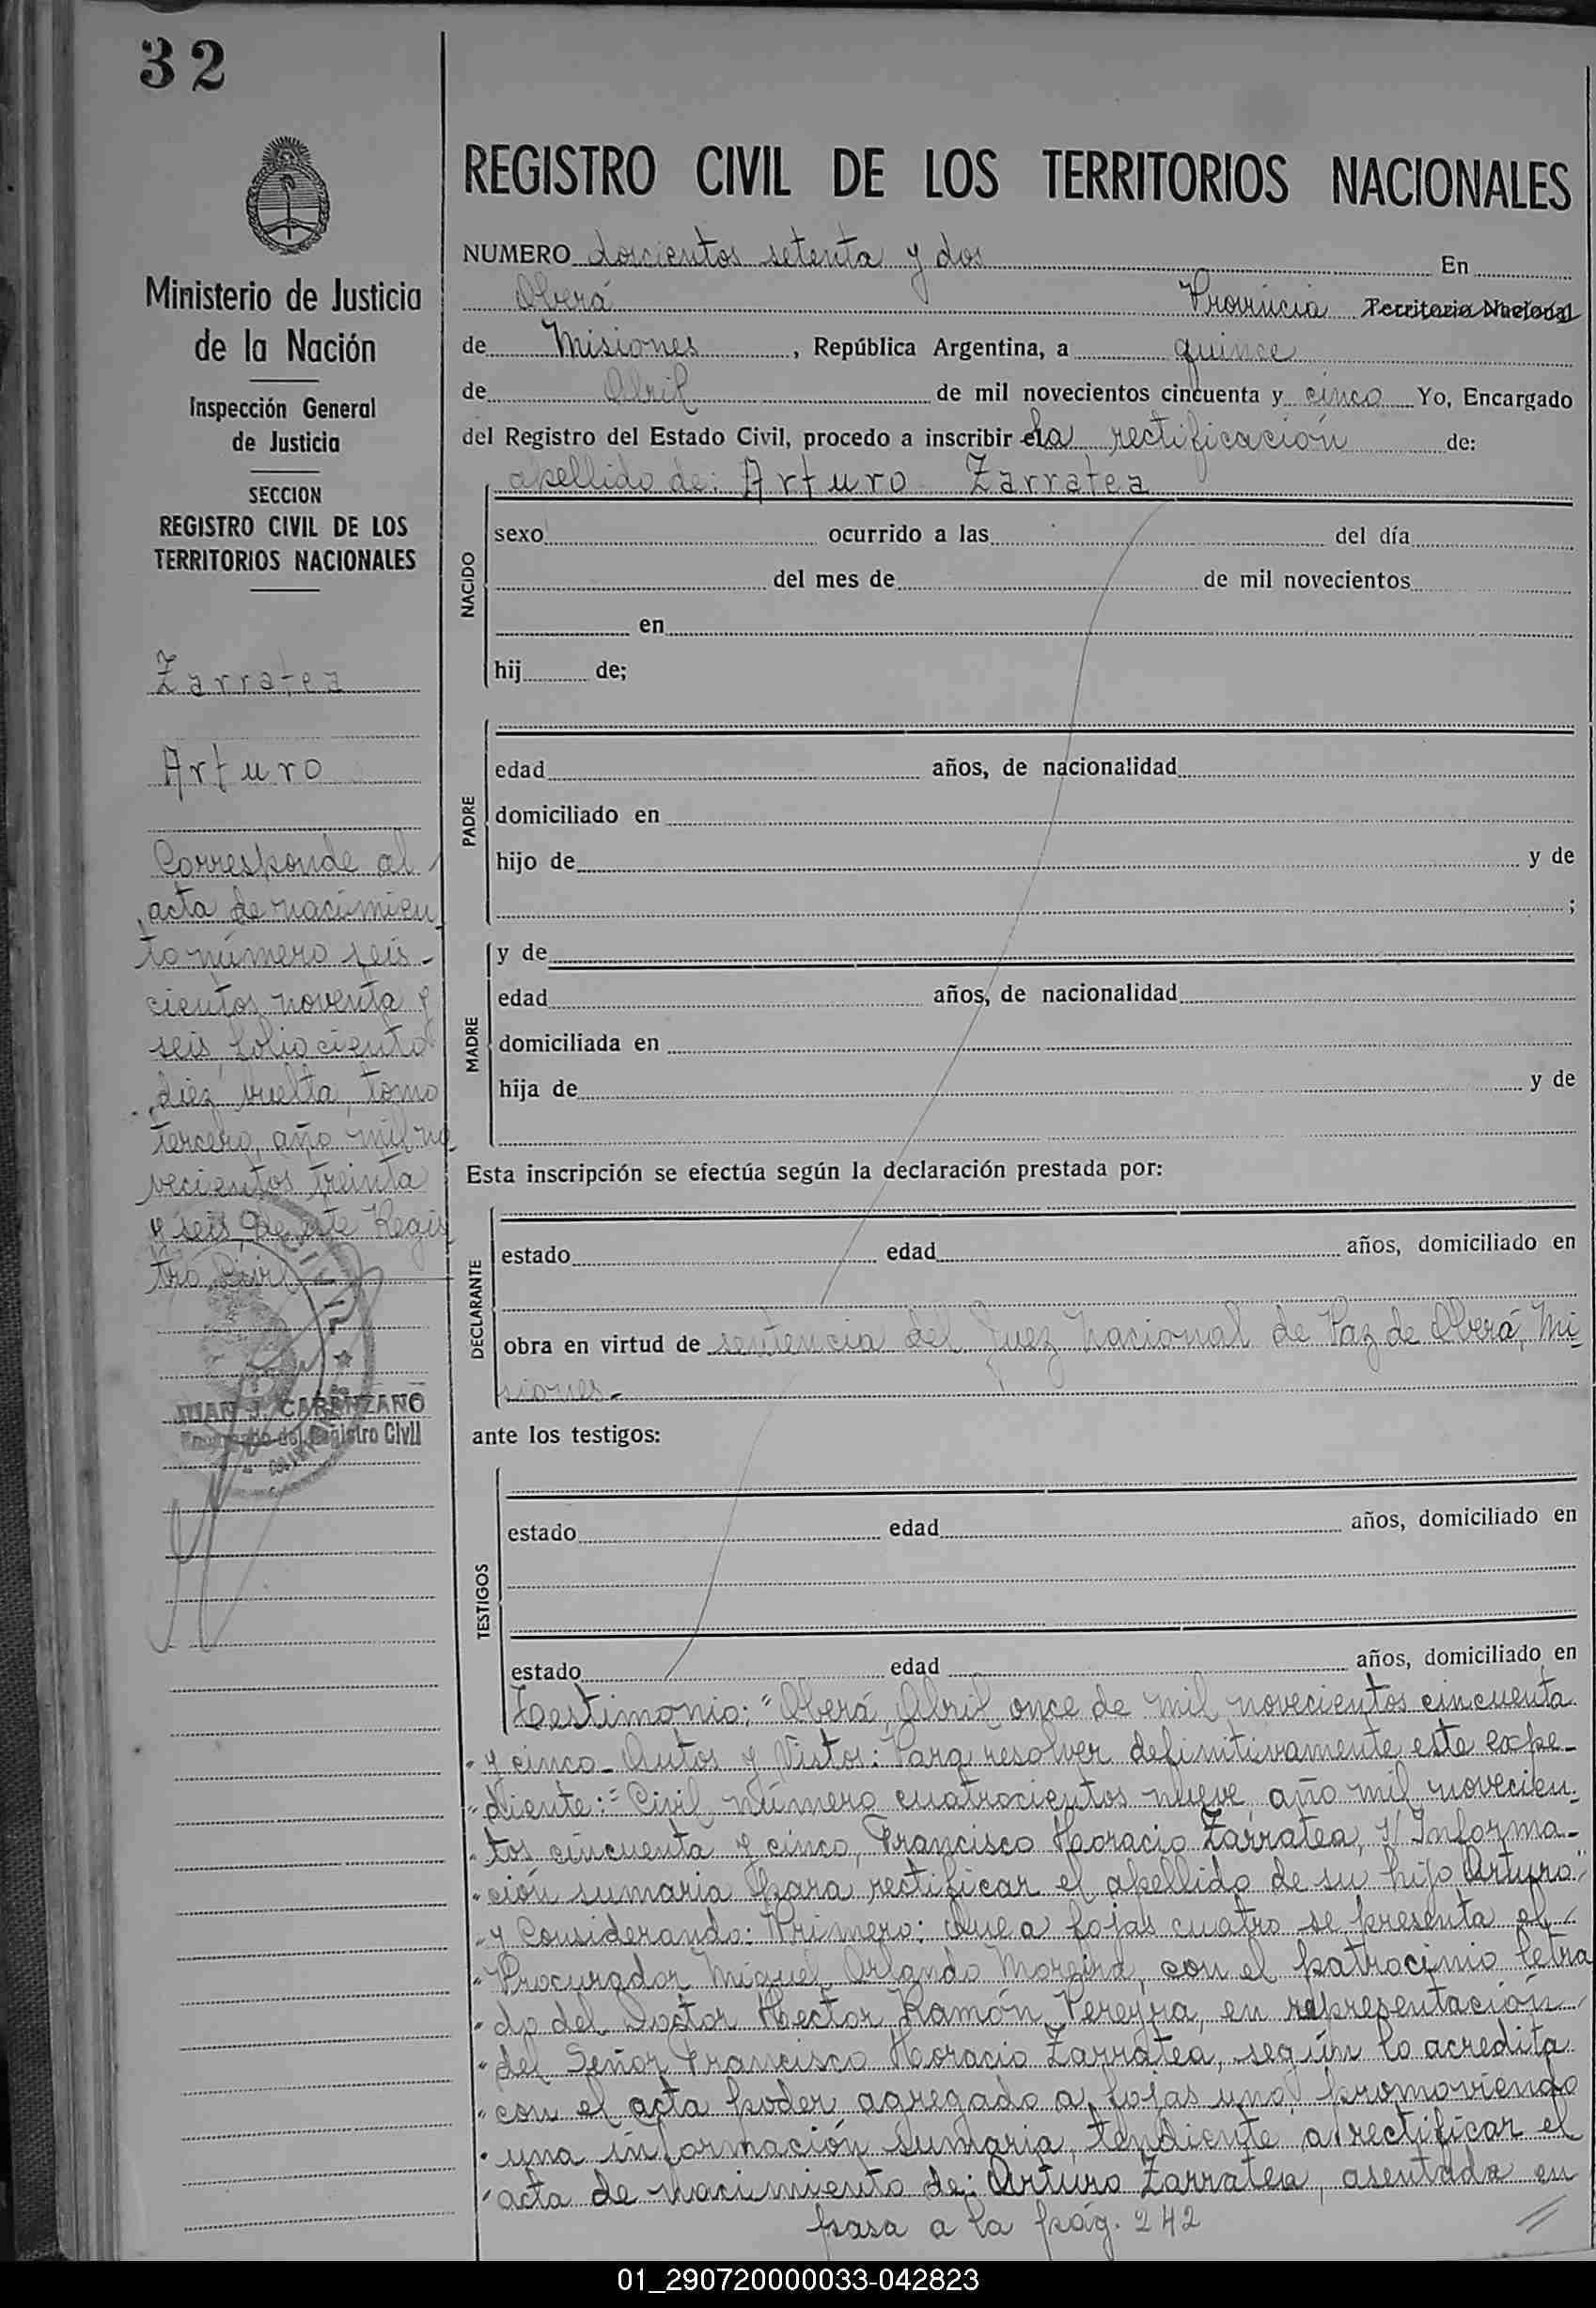 32
Ministerio de Justicia
de la Nación
Inspección General
de Justicia
SECCION
REGISTRO CIVIL DE LOS
TERRITORIOS NACIONALES
Zarratea
Arturo
Corresponde al
acta de nacimien
to número seis-
cientos noventa y
seis, folio ciento
diez vuelta, tomo
tercero, año mil no
vecientos treinta
y seis, de este Regis
tro Civil
JUAN J. CARANZANO
Encargado del Registro Civil
REGISTRO CIVIL DE LOS TERRITORIOS NACIONALES
NUMERO doscientos setenta y dos En
Oberá Provincia Territorio Nacional
de Misiones, República Argentina, a quince
de Abril de mil novecientos cincuenta y cinco Yo, Encargado
del Registro del Estado Civil, procedo a inscribir el la rectificación de:
apellido de: Arturo Zarratea
NACIDO
sexo ocurrido a las del día
del mes de de mil novecientos
en
hij de;
PADRE
edad años, de nacionalidad
domiciliado en
hijo de y de
;
MADRE
y de
edad años, de nacionalidad
domiciliada en
hija de y de
Esta inscripción se efectúa según la declaración prestada por:
DECLARANTE
estado edad años, domiciliado en
obra en virtud de sentencia del Juez Nacional de Paz de Oberá, Mi
siones.-
ante los testigos:
TESTIGOS
estado edad años, domiciliado en
estado edad años, domiciliado en
Testimonio: "Oberá, Abril once de mil novecientos cincuenta
"y cinco- Autos y Vistos: Para resolver definitivamente este expe-
"diente:" Civil, número cuatrocientos nueve, año mil novecien-
"tos cincuenta y cinco, Francisco Horacio Zarratea, s/ Informa-
"ción sumaria para rectificar el apellido de su hijo Arturo"
"y Considerando: Primero: Que a fojas cuatro se presenta el
"Procurador Miguel Orlando Moreira, con el patrocinio letra
"do del Doctor Hector Ramón Pereyra, en representación
"del Señor Francisco Horacio Zarratea, según lo acredita
"con el acta poder agregado a fojas uno, promoviendo
"una información sumaria, tendiente a rectificar el
"acta de nacimiento de: Arturo Zarratea, asentada en
pasa a la pág. 242 //
01_290720000033-042823